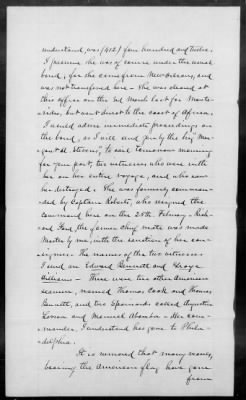 understand, was (412) four hundred and twelve.
I presume she was of course under the usual
bond, for she came from New Orleans, and
was not transferred here - She was cleared at
this office on the 2nd March last for Monte-
video, but went direct to the coast of Africa.
I would advise immediate proceedings on the
bond, as I will send by the brig "Mar-
garet A. Stevens", to sail tomorrow morning
for your port, two witnesses who were with
her on her entire voyage, and who saw
her destroyed. She was formerly command-
ed by Captain Roberts, who resigned the
command here on the 28th February - Rich-
ard Ford, the former chief mate was made
Master by me, with the sanction of her con-
signees. The names of the two witnesses
I send are Edward Bennett and George
Williams - There were two other American
seamen, named Thomas Cook and Thomas
Bennett, and two Spaniards called Augustus
and Manuel - Her com-
mander, I understand has gone to Phila-
delphia.
It is rumored that many vessels,
bearing the American flag have gone
from